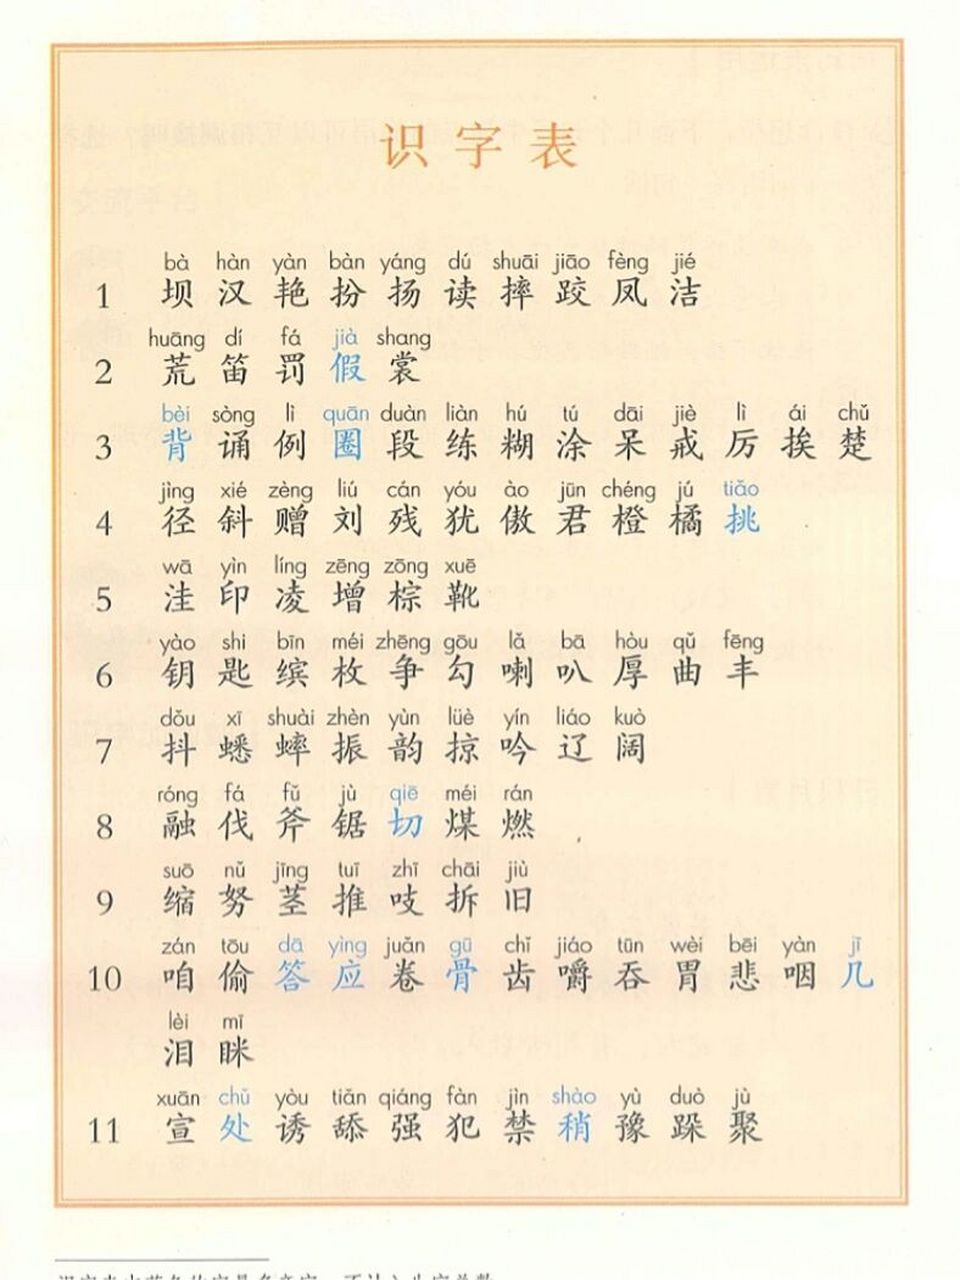 识字表
bà hàn yàn bàn yáng dú shuāi jiāo fèng jié
1 坝 汉 艳 扮 扬 读 摔 跤 凤 洁
huāng dí fá jià shang
2 荒 笛 罚 假 裳
bèi sòng lì quān duàn liàn hú tú dāi jiè lì ái chǔ
3 背 诵 例 圈 段 练 糊 涂 呆 戒 厉 挨 楚
jìng xié zèng liú cán yóu ào jūn chéng jú tiǎo
4 径 斜 赠 刘 残 犹 傲 君 橙 橘 挑
wā yìn líng zēng zōng xuē
5 洼 印 凌 增 棕 靴
yào shi bīn méi zhēng gōu lǎ bā hòu qǔ fēng
6 钥 匙 缤 枚 争 勾 喇 叭 厚 曲 丰
dǒu xī shuài zhèn yùn lüè yín liáo kuò
7 抖 蟋 蟀 振 韵 掠 吟 辽 阔
róng fá fǔ jù qiē méi rán
8 融 伐 斧 锯 切 煤 燃
suō nǔ jīng tuī zhī chāi jiù
9 缩 努 茎 推 吱 拆 旧
zán tōu dā yìng juǎn gū chǐ jiáo tūn wèi bēi yàn jī
10 咱 偷 答 应 卷 骨 齿 嚼 吞 胃 悲 咽 几
lèi mī
泪 眯
xuān chǔ yòu tiǎn qiáng fàn jìn shào yù duò jù
11 宣 处 诱 舔 强 犯 禁 稍 豫 跺 聚